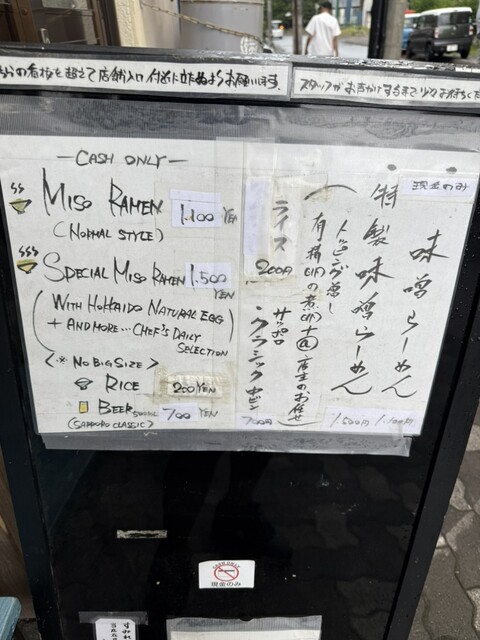 ちらの看板を超えて店舗入口付近に立たぬようお願いします。
スタッフがお声かけするまで少々お待ちくだ
— CASH ONLY —
MISO RAMEN 1.100 YEN
(NORMAL STYLE)
SPECIAL MISO RAMEN 1.500 YEN
(WITH HOKKAIDO NATURAL EGG
+ AND MORE... CHEF'S DAILY
SELECTION)
<※ NO BIG SIZE>
RICE 200 YEN
BEER 500ML 700 YEN
(SAPPORO CLASSIC)
現金のみ
味噌らーめん 1.100円
特製味噌らーめん 1.500円
(トッピング増し
有精卵の煮卵+α 店主のお任せ)
ライス 200円
・サッポロクラシック 中ビン 700円
現金のみ
すみれ